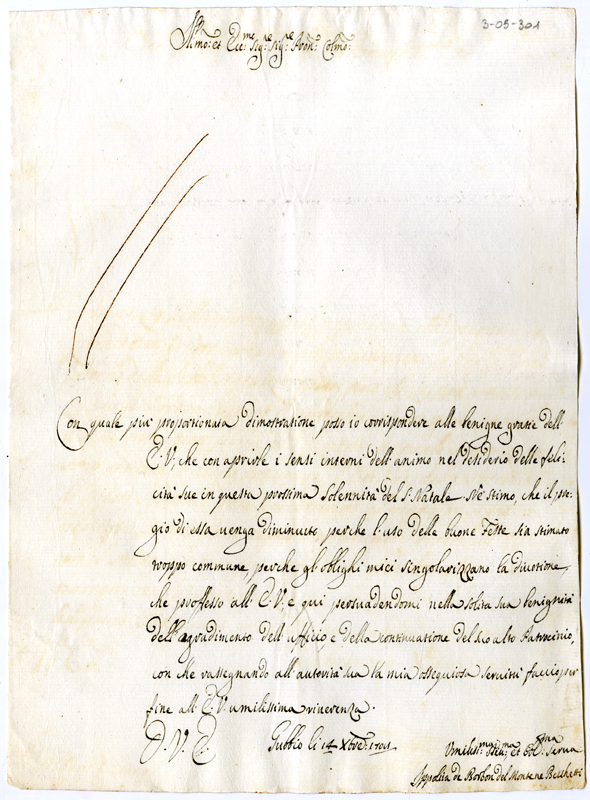 3-05-301
Ill.mo: et Ecc:mo Sig:re Sig:re Pron: Colmo:
Con quale più proportionata dimostratione posso io corrispondere alle benigne gratie dell'
E.V, che con aprirle i sensi interni dell'animo nel desiderio delle feli:
cità sue in questa prossima Solennità del S. Natale. Nè stimo, che il pre:
gio di essa venga diminuito perche l'uso delle buone Feste sia stimato
troppo commune, perche gl'oblighi miei singolarizzano la divotione,
che professo all'E.V; e qui persuadendomi nella solita sua benignità
dell'agradimento dell'ufficio e della continuatione del suo alto Patrocinio,
con che rassegnando all'autorità sua la mia ossequiosa servitù faccio per
fine all'E.V. umilissima riverenza.
D. V. E. Gubbio li 14 Xbre: 1701
Umiliss:ma et Serva
Ippolita de Borbon del Monte ne Becchetti